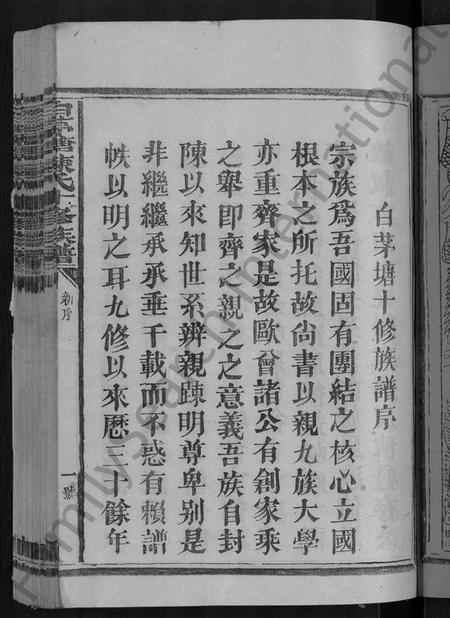 白茅塘十修族譜序
宗族爲吾國固有團結之核心立國
根本之所托故尙書以親九族大學
亦重齊家是故歐曾諸公有創家乘
之舉即齊之親之之意義吾族自封
陳以來知世系辨親踈明尊卑别是
非繼繼承承垂千載而不惑有賴譜
帙以明之耳九修以來歷三十餘年
陳氏十修族譜
新序
一號
FamilySearch International